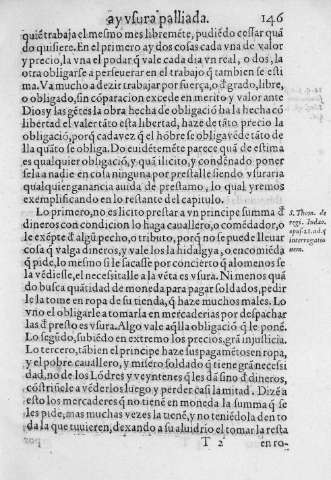 ay vsura palliada. 146
quiē trabaja el mesmo mes libremēte, pudiēdo cessar quā
do quisiere. En el primero ay dos cosas cada vna de valor
y precio, la vna el podar q̃ vale cada dia vn real, o dos, la
otra obligarse a perseuerar en el trabajo q̃ tambien se esti
ma. Va mucho a dezir trabajar por fuerça, o d̃ grado, libre,
o obligado, sin cōparacion excede en merito y valor ante
Dios y las gētes la obra hecha de obligaciō ha la hecha cō
libertad el valer tāto esta libertad, haze de tāto precio la
obligaciō, porq̃ cada vez q̃ el hōbre se obliga vēde tāto de
lla quāto se obliga. Do euidētemēte parece quā de estima
es qualquier obligaciō, y quā ilicito, y condēnado poner
sela a nadie en cosa ninguna por prestalle siendo vsuraria
qualquier ganancia auida de prestamo, lo qual yremos
exemplificando en lo restante del capitulo.
Lo primero, no es licito prestar a vn principe summa d̃
dineros con condicion lo haga cauallero, o comēdador, o
le exēpte d̃ algū pecho, o tributo, porq̃ no se puede lleuar
cosa q̃ valga dineros, y vale los la hidalgia, o encomiēda
q̃ pide, lo mesmo si le sacasse por concierto q̃ alomenos se
la vēdiesse, el necessitalle a la vēta es vsura. Ni menos quā
do busca quātidad de moneda para pagar soldados, pedir
le la tome en ropa de su tienda, q̃ haze muchos males. Lo
vno el obligarle a tomarla en mercaderias por despachar
las d̃ presto es vsura. Algo vale aq̃lla obligaciō q̃ le ponē.
Lo segūdo, subiēdo en extremo los precios, grā injusticia.
Lo tercero, tābien el principe haze sus pagamētos en ropa,
y el pobre cauallero, y misero soldado q̃ tiene grā necessi
dad, no de los Lōdres y veyntenes q̃ les dā sino d̃ dineros,
cōstriñele a vēder los luego y perder casi la mitad. Dizē a
esto los mercaderes q̃ no tienē en moneda la summa q̃ se
les pide, mas muchas vezes la tienē, y no teniēdola den to
da la que tuuieren, dexando a su aluidrio el tomar la resta
T 2 en ro-
S. Thom. de
regi. Iudæo.
opus. 21. ad. 4.
interrogatio
nem.